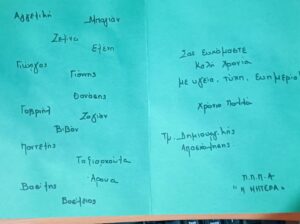 Αγγελική
Μπαγιάν
Ζείνα
Ελένη
Γιώργος
Γιάννης
Θανάσης
Γαβριήλ
Ζαγιάν
Βιβιάν
Παντελής
Βασίλης
Βασίλειος
Σας Ευχόμαστε
Καλή Χρονιά
με υγεία, τύχη, Ευημερία!
Χρόνια Πολλά
Τμ. Δημιουργικής
Απασχόλησης
Π.Π.Π.Α
"Η ΜΗΤΕΡΑ"